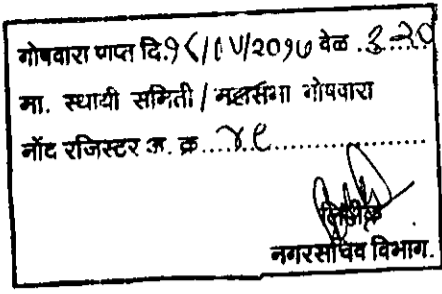 गोषवारा प्राप्त दि.१८/०५/२०१७ वेळ .३.२०
मा. स्थायी समिती / महासभा गोषवारा
नोंद रजिस्टर अ. क्र....४९....................
लिपीक
नगरसचिव विभाग.